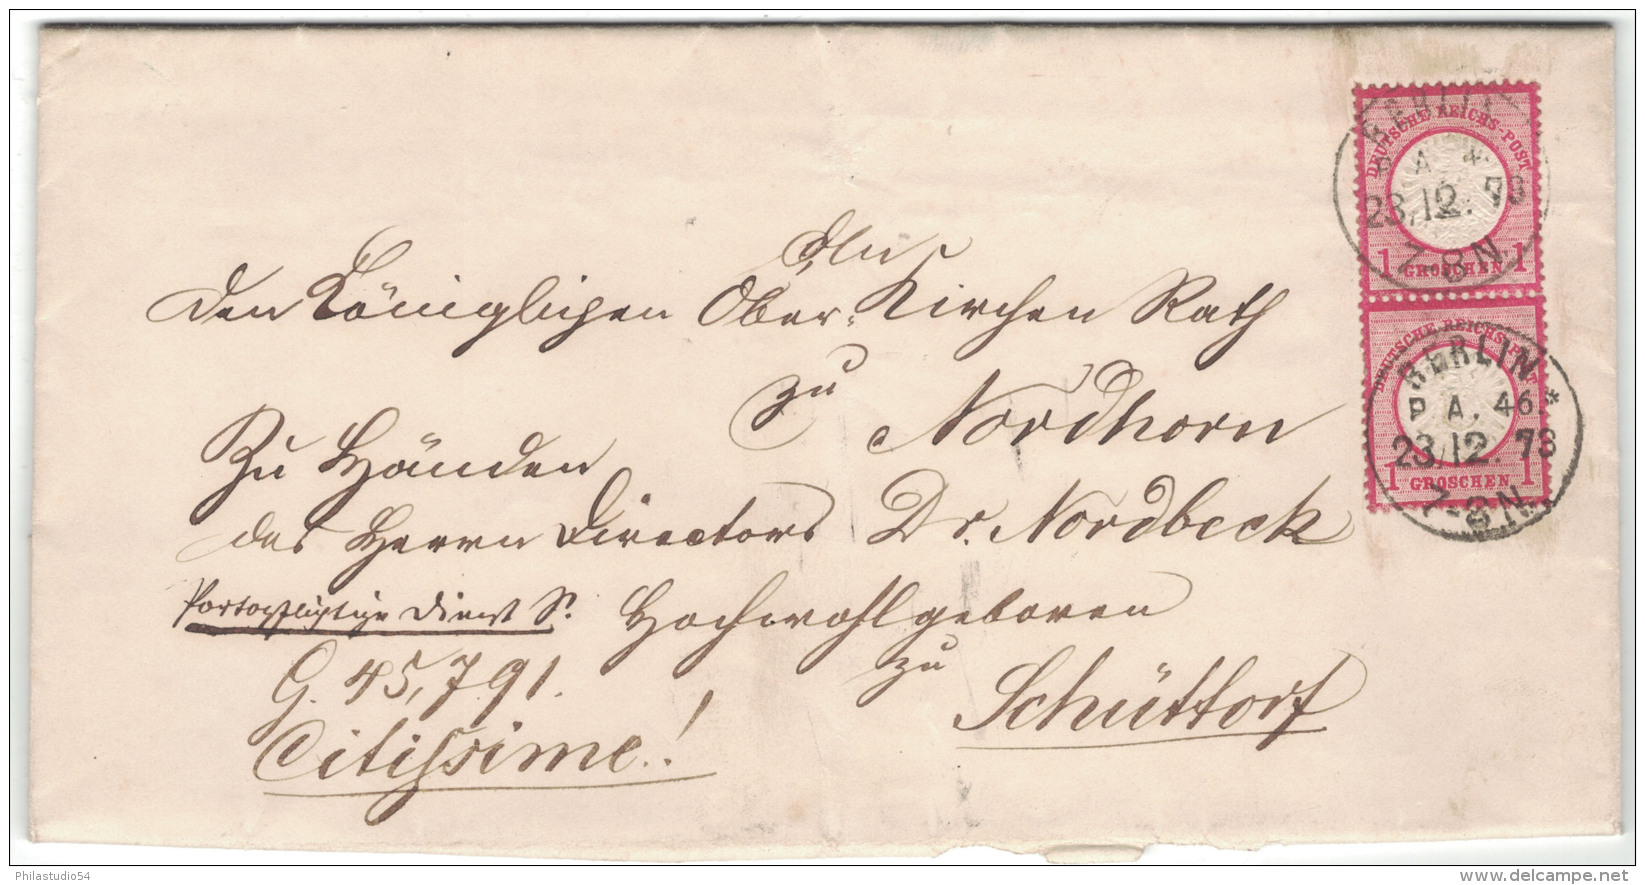 BERLIN
P. A. *
23,12.73
7-8 N.
DEUTSCHE REICHS-POST
1 GROSCHEN 1
BERLIN
P. A. 46 *
23,12.73
7-8 N.
DEUTSCHE REICHS-POST
1 GROSCHEN 1
An
den Königlichen Ober-Kirchen Rath
zu
Nordhorn
Zu Händen
des Herrn Directors Dr. Nordbeck
Portopflichtige Dienst S. Hochwohlgeboren
zu
G. 45,791. Schüttorf
Citissime!
Philastudio54
delcampe.net